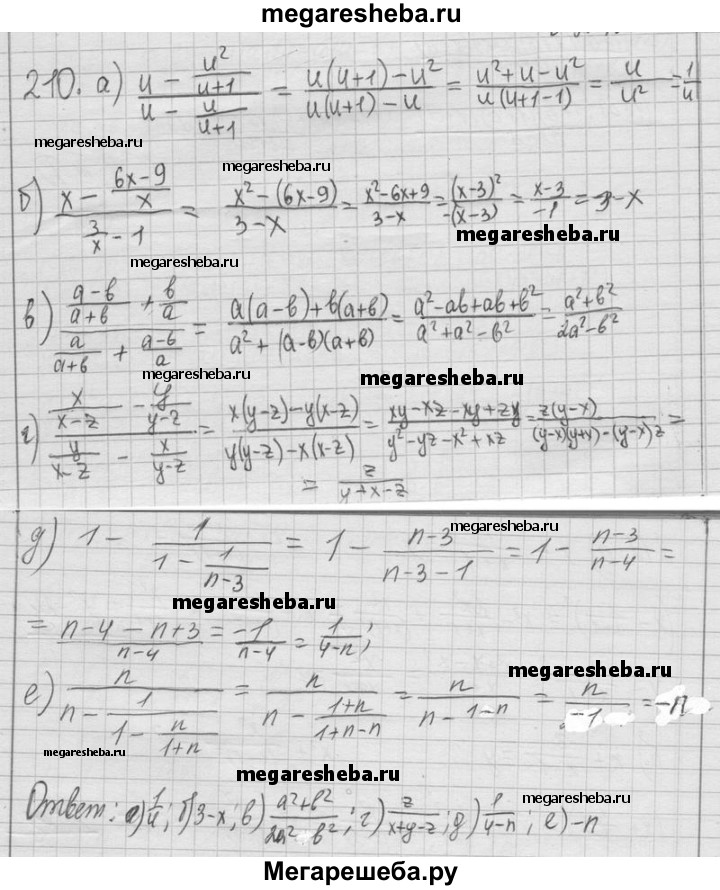 megaresheba.ru
210. а) (u - u²/(u+1))/(u - u/(u+1)) = (u(u+1) - u²)/(u(u+1) - u) = (u² + u - u²)/(u(u+1-1)) = u/u² = 1/u
megaresheba.ru megaresheba.ru
б) (x - (6x-9)/x)/(3/x - 1) = (x² - (6x-9))/(3-x) = (x²-6x+9)/(3-x) = (x-3)²/(-(x-3)) = (x-3)/(-1) = 3-x
megaresheba.ru
megaresheba.ru
в) ((a-b)/(a+b) + b/a)/(a/(a+b) + (a-b)/a) = (a(a-b)+b(a+b))/(a²+(a-b)(a+b)) = (a²-ab+ab+b²)/(a²+a²-b²) = (a²+b²)/(2a²-b²)
megaresheba.ru megaresheba.ru
г) (x/(x-z) - y/(y-z))/(y/(x-z) - x/(y-z)) = (x(y-z)-y(x-z))/(y(y-z)-x(x-z)) = (xy-xz-xy+zy)/(y²-yz-x²+xz) = z(y-x)/((y-x)(y+x)-(y-x)z) =
= z/(y+x-z)
megaresheba.ru
д) 1 - 1/(1 - 1/(n-3)) = 1 - (n-3)/(n-3-1) = 1 - (n-3)/(n-4) =
megaresheba.ru
= (n-4-n+3)/(n-4) = -1/(n-4) = 1/(4-n);
megaresheba.ru
е) n/(n - 1/(1 - n/(1+n))) = n/(n - (1+n)/(1+n-n)) = n/(n-1-n) = n/(-1) = -n
megaresheba.ru megaresheba.ru
megaresheba.ru
Ответ: а) 1/u; б) 3-x; в) (a²+b²)/(2a² b²); г) z/(x+y-z); д) 1/(4-n); е) -n
megaresheba.ru
Мегарешеба.ру